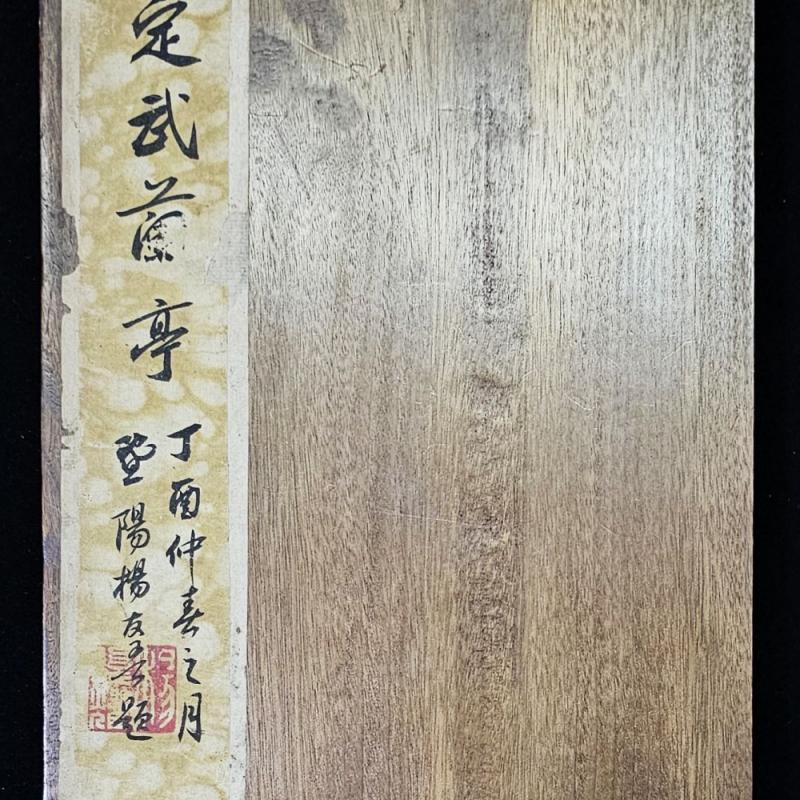 定武蘭亭
丁酉仲春之月
暨陽楊友春題